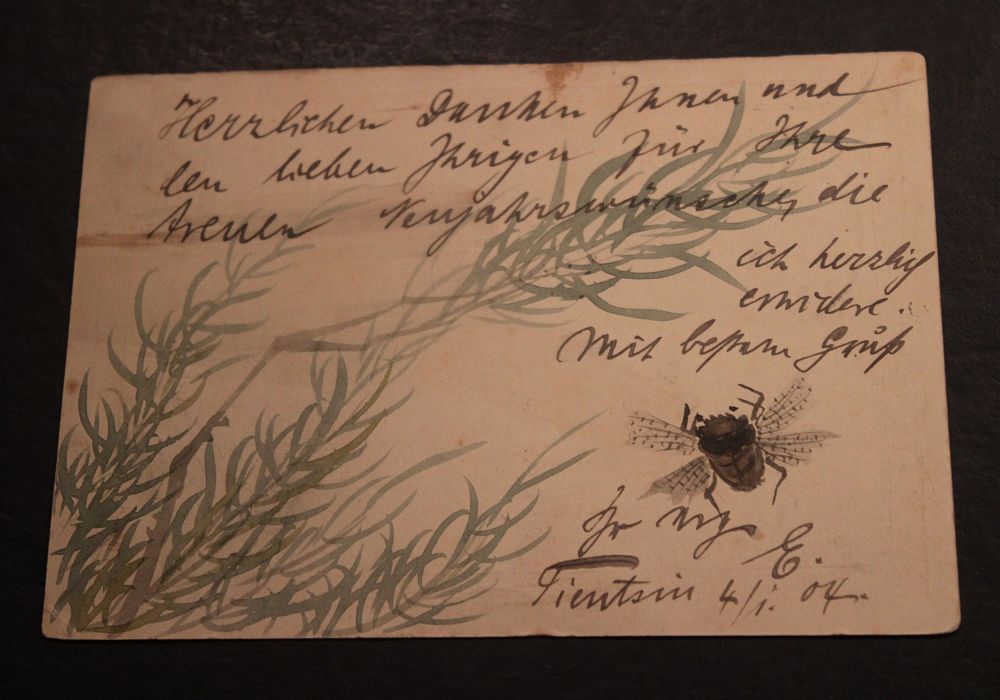 Herzlichen Danken Ihnen und
den lieben Ihrigen für Ihre
treuen Neujahrswünsche, die
ich herzlich
erwidere.
Mit bestem Gruß
Ihr
E.
Tientsin 4/1. 04.